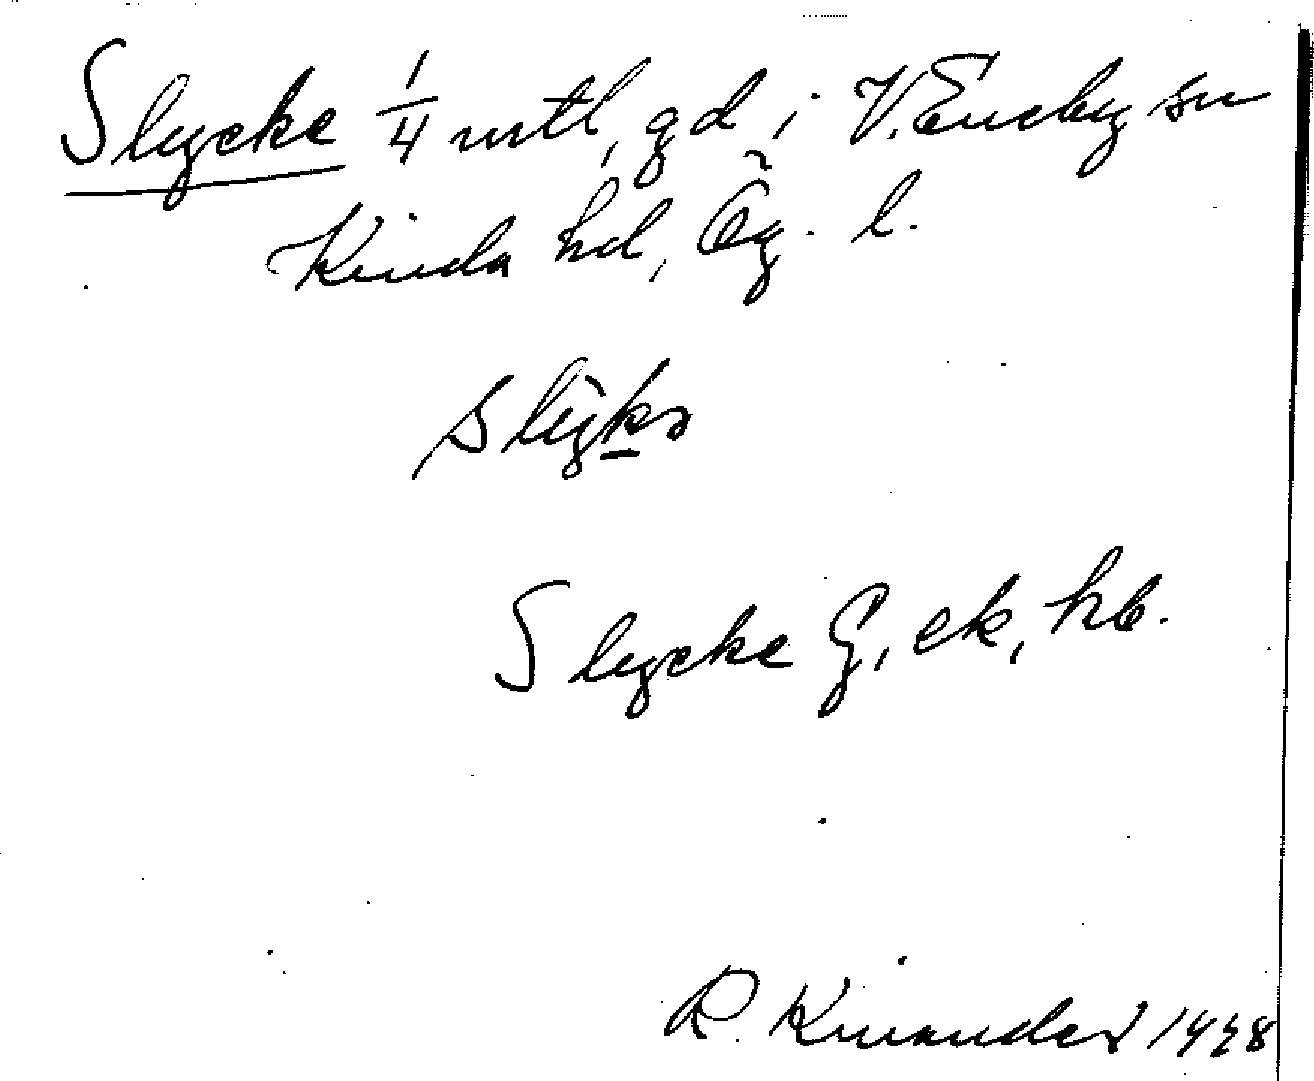 Slycke 1/4 mtl, gd i V. Eneby sn
Kinda hd, Ög. l.
slỳkə
Slycke G, ek, hb.
R. Kinander 1928